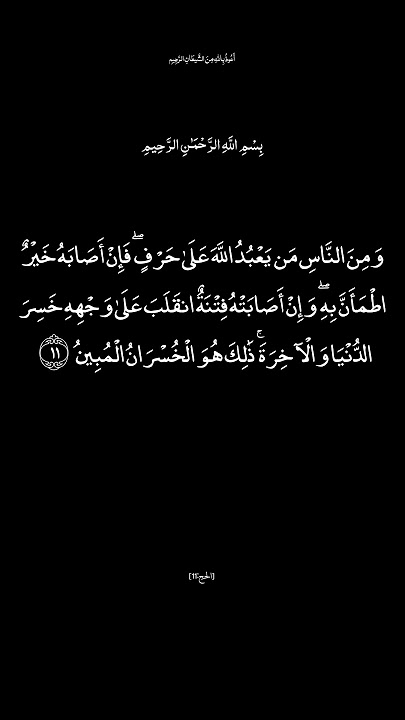 أَعُوذُ بِاللَّهِ مِنَ الشَّيْطَانِ الرَّجِيمِ
بِسْمِ اللَّهِ الرَّحْمَٰنِ الرَّحِيمِ
وَمِنَ النَّاسِ مَن يَعْبُدُ اللَّهَ عَلَىٰ حَرْفٍ ۖ فَإِنْ أَصَابَهُ خَيْرٌ
اطْمَأَنَّ بِهِ ۖ وَإِنْ أَصَابَتْهُ فِتْنَةٌ انقَلَبَ عَلَىٰ وَجْهِهِ خَسِرَ
الدُّنْيَا وَالْآخِرَةَ ۚ ذَٰلِكَ هُوَ الْخُسْرَانُ الْمُبِينُ ١١
[الحج:11]